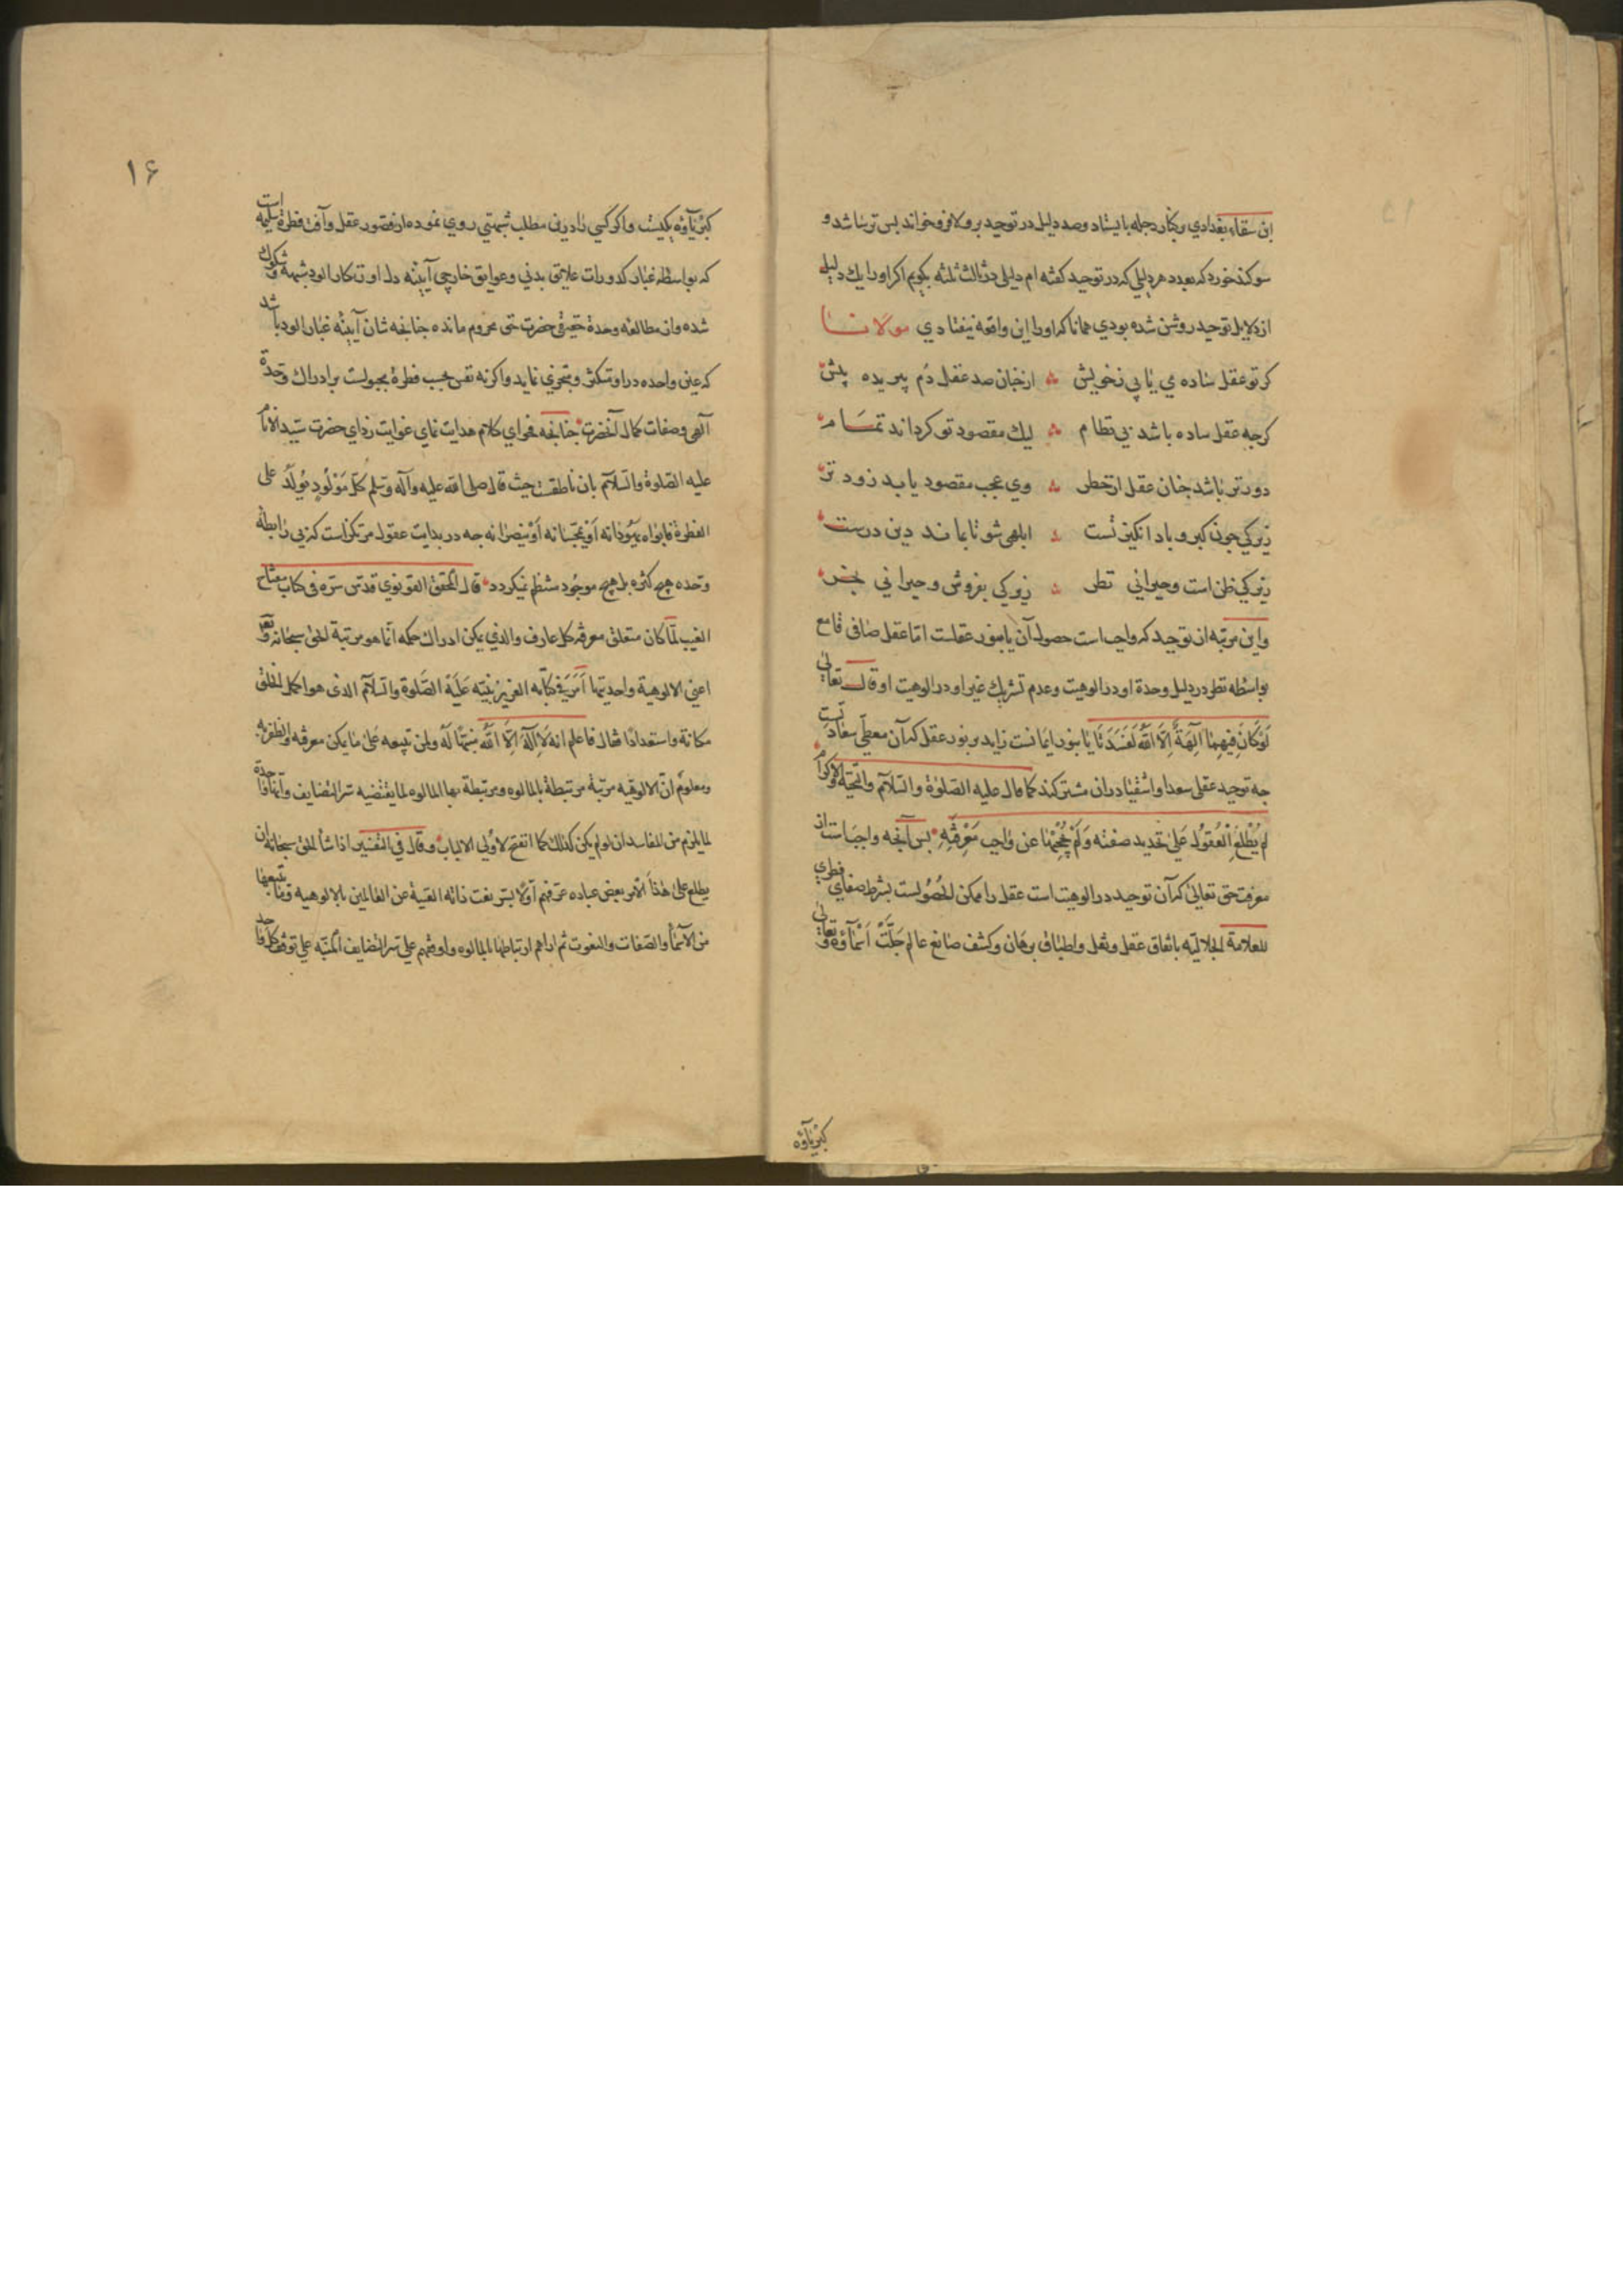 ابن سقاء بغدادي بركنار دجله بايستاد وصد دليل در توحيد برو لا فرو خواند بس ترسا شد و
سوكند خورد كه بعدد هر دليلي كه در توحيد كفته ام دليلي در ثالث ثلثه بكويم اكر اورا يك دليل
از دلايل توحيد روشن شده بودي همانا كه اورا اين واقعه نيفتادي مولانا
كر تو عقل ساده مي يابي ز خويش ازخنان صد عقل دم ببريده پيش
كرجه عقل ساده باشد بي نظام ليك مقصود تو كرداند تمام
دورتر باشد جنان عقل از خطر وي عجب مقصود يابد زودتر
زيركي جون كبر و باد انكيز تست ابلهي شو تا بماند دين درست
زيركي ظن است وحيراني نظر زيركي بفروش وحيراني بخر
واين مرتبه از توحيد كه واجب است حصول آن يا بنور عقلست اما عقل صافي قامع
بواسطه نظر در دليل وحدة او در الوهيت وعدم تشريك غير او در الوهيت او قال تعالى
لَوْ كَانَ فِيهِمَا آلِهَةٌ إِلَّا اللَّهُ لَفَسَدَتَا يا بنور ايمانست زايد بر نور عقل كه آن معطي سعادتست
جه توحيد عقلي سعدا واشقيا دران مشتركند كما قال عليه الصلوة والسلام والتحية والاكرام
لم يُطْلِعِ الْعُقُولَ عَلى تحديد صفته وَلَمْ يَحْجُبْهَا عن واجب مَعْرِفَتِهِ بس آنجه واجبست از
معرفت حق تعالى كه آن توحيد در الوهيت است عقل را ممكن الحُصُولست بشرط صفاي فطري
للعلامة الجلاليه باتفاق عقل ونقل واطباق برهان وكشف صانع عالم جَلَّتْ اَسْمَآؤه وتعالى
كبرياؤه
۱۶
كبرياؤه يكيست واكر كسي را درين مطلب شبهتي روي نموده از قصور عقل وآفت فطرة سليمه است
كه بواسطه غبار كدورات علايق بدني وعوايق خارجي آيينه دل او زنكار الود شبهه وشكوك
شده واز مطالعه وحدة حقيقي حضرت حق محروم مانده جنانجه شان آيينه غبار الود باشد
كه عين واحده در او متكثر ومتجزي نمايد واكرنه نفس بحسب فطرة مجبولست بر ادراك وحدة
آلهي وصفات كمال آنحضرت جنانجه فحواي كلام هدايت نماي غوايت زداي حضرت سيد الانام
عليه الصلوة والسلام بان ناطقست حيث قال صلى الله عليه وآله وسلم كلّ مَوْلُودٍ يُولَدُ على
الفطرة فابواه يهوّدانه اَوْ يمجّسانه اَوْ ينصّرانه جه در بدايت عقول مرتكز است كه بي رابطه
وحده هيج كثره بل هيج موجود منتظم نيكردد قال المحقق القونوي قدّس سرّه في كتاب مفتاح
الغيب لمّا كان متعلق معرفة كل عارف والذي يمكن ادراك حكمه انّما هو مرتبة الحق سبحانه وتعالى
اعني الالوهية واحديتها اَمَرَ في كتابه العزيز نبيّه عَلَيْه الصّلوة والسّلام الذي هو اكمل الخلق
مكانة واستعدادًا فقال فاعلم انه لا اِلٓهَ اِلَّا اللّٰه منبهًا لَهُ ولمن تبعه على ما يمكن معرفته والظفر به
ومعلوم انّ الالوهيّه مرتبة مرتبطة بالمالوه ومرتبطة بها المالوه لما يقتضيه سرّ التضايف وانها واحدة
لما يلزم من المفاسد ان لو لم يكن كذلك كما اتضح لاولي الالباب وقال في التفسير اذا شا الحق سبحانه ان
يطلع على هذا الامر بعض عباده عرّفهم اوّلا بسرّ نعت ذاته الغنية عن العالمين بالالوهيه وما يتبعها
من الاسمآ والصّفات والنعوت ثم اراهم ارتباطها بالمالوه واوقفهم على سرّ التضايف المنبّه على توقف كل واحد